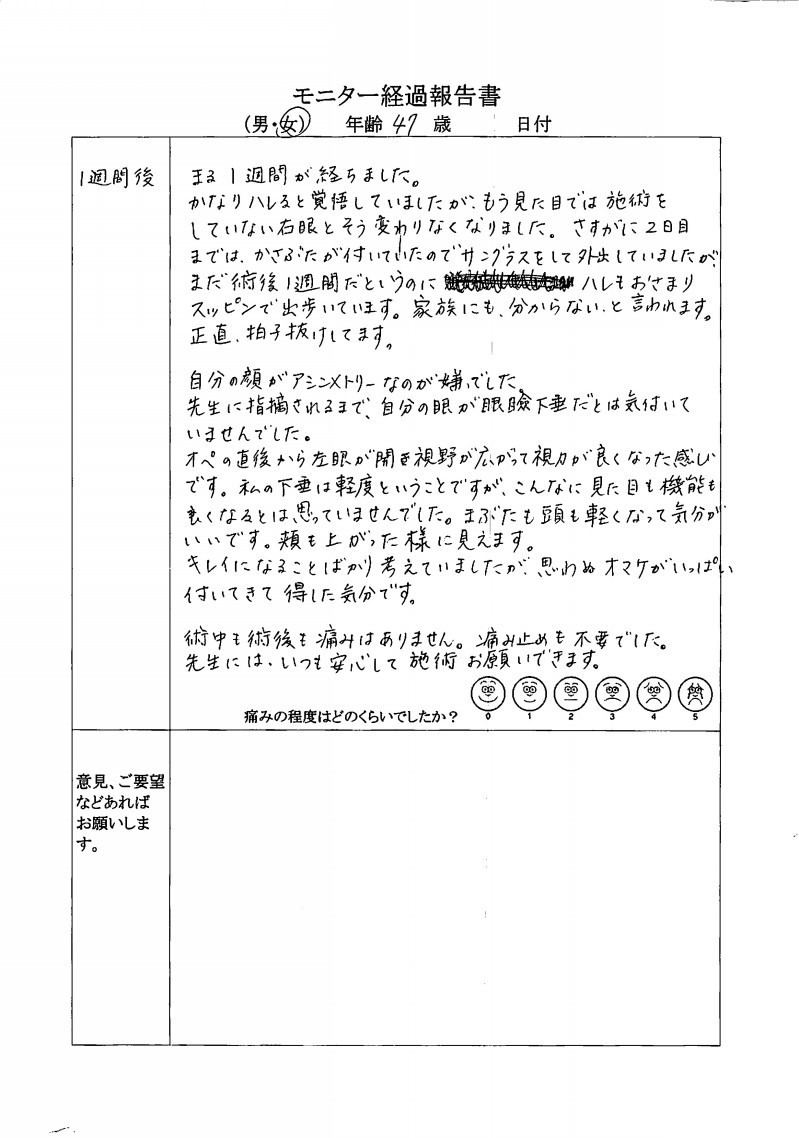 モニター経過報告書
(男・女) 年齢 47 歳 日付
1週間後
まる1週間が経ちました。
かなりハレると覚悟していましたが、もう見た目では施術を
していない右眼とそう変わりなくなりました。さすがに2日目
までは、かさぶたが付いていたのでサングラスをして外出していましたが、
まだ術後1週間だというのに ハレもおさまり
スッピンで出歩いています。家族にも、分からない、と言われます。
正直、拍子抜けしてます。
自分の顔がアシンメトリーなのが嫌でした。
先生に指摘されるまで、自分の眼が眼瞼下垂だとは気付いて
いませんでした。
オペの直後から左眼が開き視野が広がって視力が良くなった感じ
です。私の下垂は軽度ということですが、こんなに見た目も機能も
良くなるとは、思っていませんでした。まぶたも頭も軽くなって気分が
いいです。頬も上がった様に見えます。
キレイになることばかり考えていましたが、思わぬオマケがいっぱい
付いてきて得した気分です。
術中も術後も痛みはありません。痛み止めも不要でした。
先生には、いつも安心して施術お願いできます。
痛みの程度はどのくらいでしたか? 0 1 2 3 4 5
意見、ご要望
などあれば
お願いしま
す。